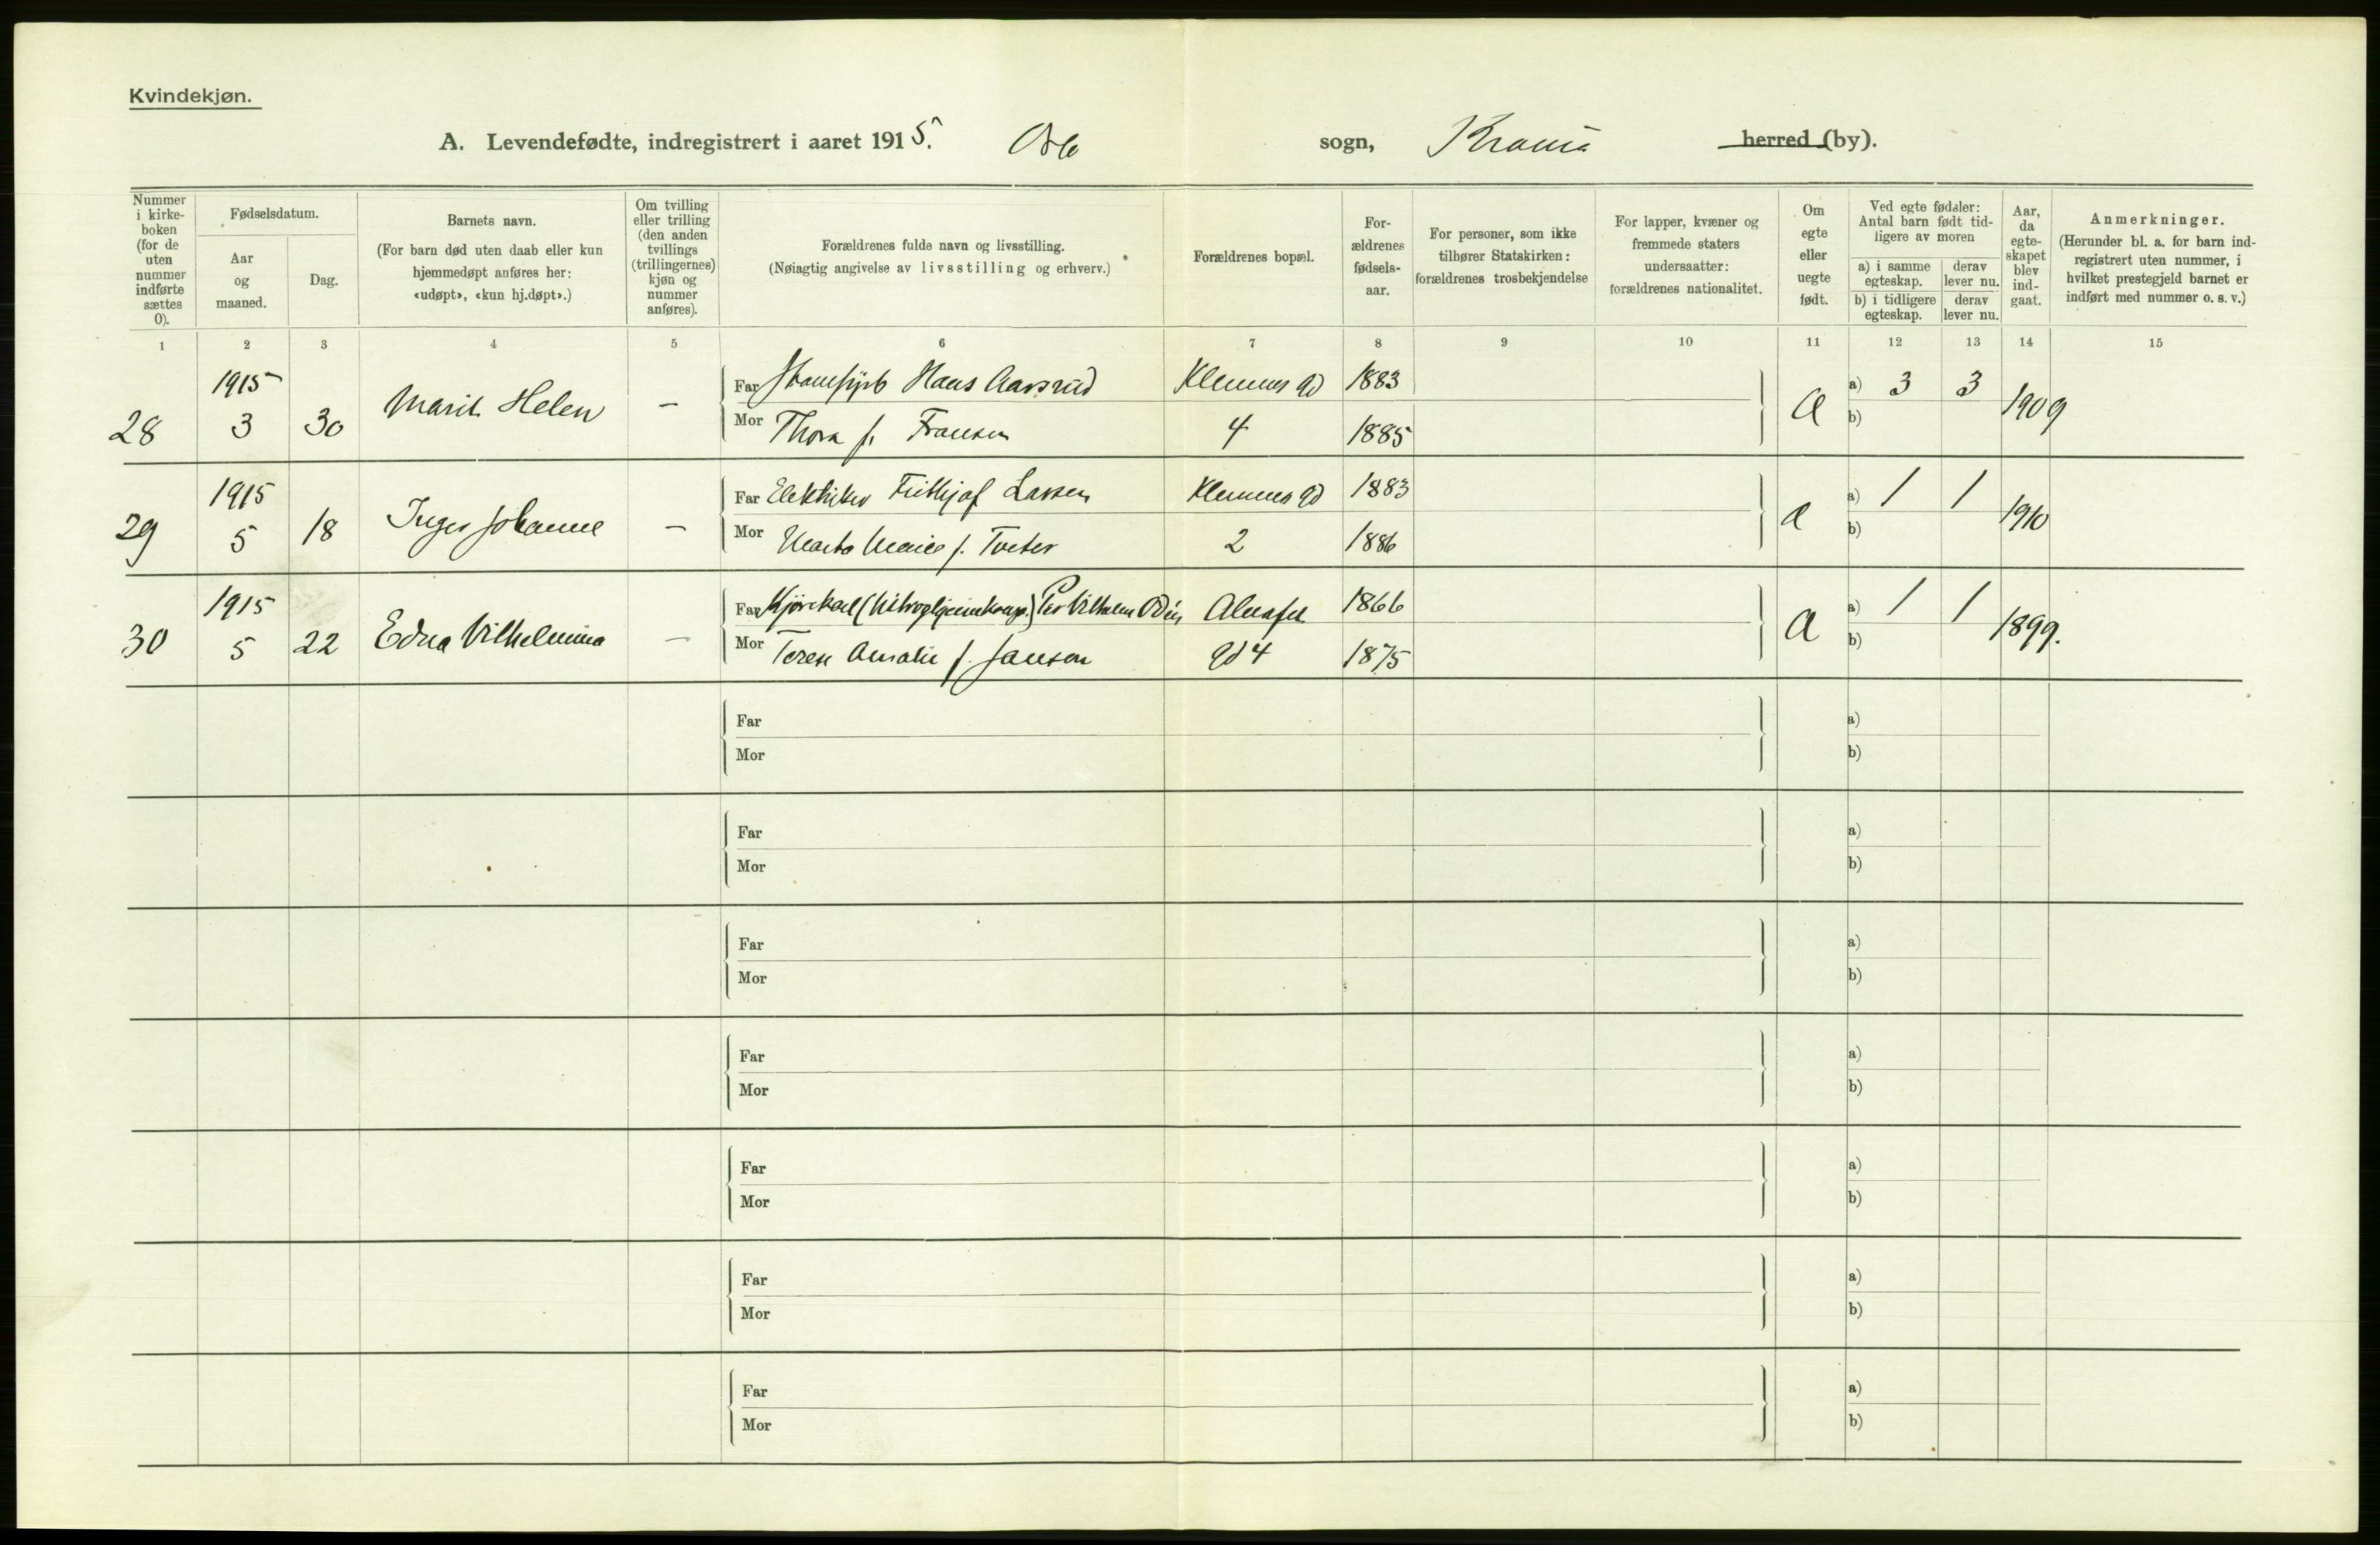 Kvindekjøn.
A. Levendefødte, indregistrert i aaret 1915. Oslo sogn, Krania herred (by).
Nummer i kirke-boken (for de uten nummer indførte sættes 0).
Fødselsdatum.
Aar og maaned.
Dag.
Barnets navn.
(For barn død uten daab eller kun hjemmedøpt anføres her: «udøpt», «kun hj.døpt».)
Om tvilling eller trilling (den anden tvillings (trillingernes) kjøn og nummer anføres).
Forældrenes fulde navn og livsstilling.
(Nøiagtig angivelse av livsstilling og erhverv.)
Forældrenes bopæl.
For-ældrenes fødsels-aar.
For personer, som ikke tilhører Statskirken: forældrenes trosbekjendelse
For lapper, kvæner og fremmede staters undersaatter: forældrenes nationalitet.
Om egte eller uegte født.
Ved egte fødsler: Antal barn født tid-ligere av moren
a) i samme egteskap.
derav lever nu.
b) i tidligere egteskap.
derav lever nu.
Aar, da egte-skapet blev ind-gaat.
Anmerkninger.
(Herunder bl. a. for barn ind-registrert uten nummer, i hvilket prestegjeld barnet er indført med nummer o. s. v.)
1 2 3 4 5 6 7 8 9 10 11 12 13 14 15
1915 Far Hans Aarsrud Klemens gd 1883 a) 3 3
28 3 30 Marit Helen — Mor Thora f. Fransen 4 1885 a b) 1909
1915 Far Elektriker Frithjof Larsen Klemens gd 1883 a) 1 1
29 5 18 Inger Johanne — Mor Marie f. Tveter 2 1886 a b) 1910
1915 Far Kjørekarl Per Vilhelm 1866 a) 1 1
30 5 22 Edna Vilhelmina — Mor Terese Amalie f. Jansen gd 4 1875 a b) 1899.
Far a)
Mor b)
Far a)
Mor b)
Far a)
Mor b)
Far a)
Mor b)
Far a)
Mor b)
Far a)
Mor b)
Far a)
Mor b)